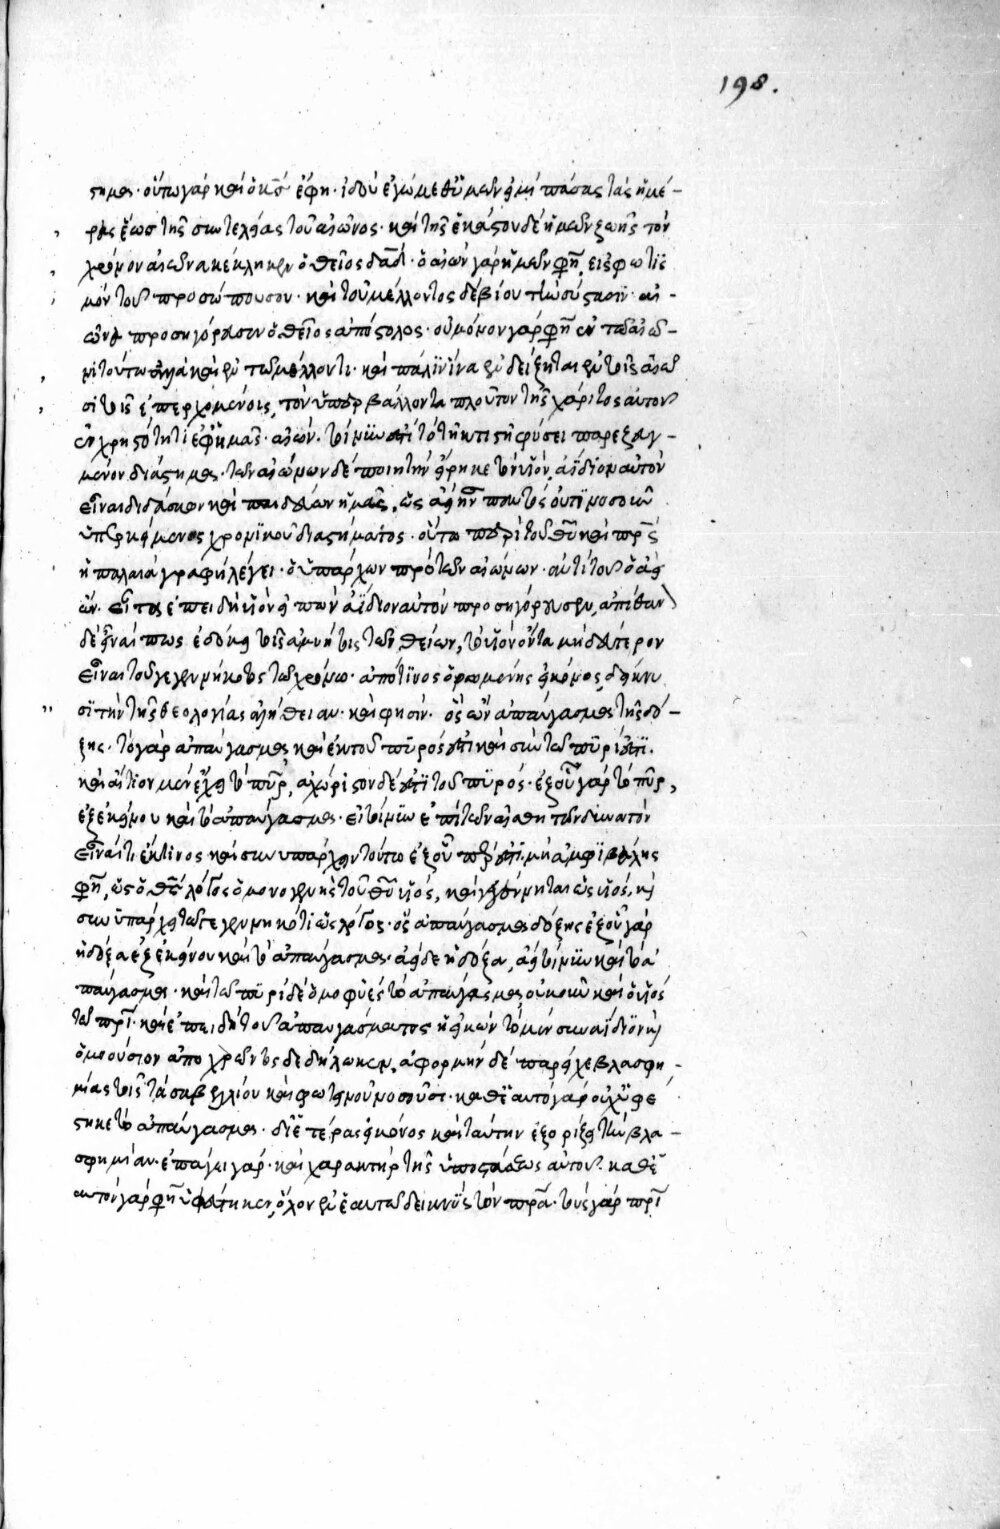 198.
στημα· οὕτω γὰρ καὶ ὁ κς ἔφη· ἰδοὺ ἐγὼ μεθ' ὑμῶν εἰμὶ πάσας τὰς ἡμέ-
ρας ἕως τῆς συντελείας τοῦ αἰῶνος· καὶ τῆς ἑκάστου δὲ ἡμῶν ζωῆς τὸν
χρόνον αἰῶνα κέκληκεν ὁ θεῖος δαδ· ὁ αἰὼν γὰρ ἡμῶν φησιν, εἰς φωτισ
μὸν τοῦ προσώπου σου· καὶ τοῦ μέλλοντος δὲ βίου τὴν σύστασιν αἰ-
ῶνα προσηγόρευσεν ὁ θεῖος ἀπόστολος· οὐ μόνον γάρ φησιν ἐν τῷ αἰῶ-
νι τούτῳ ἀλλὰ καὶ ἐν τῷ μέλλοντι· καὶ πάλιν ἵνα ἐνδείξηται ἐν τοῖς αἰῶ
σι τοῖς ἐπερχομένοις, τὸν ὑπερβάλλοντα πλοῦτον τῆς χάριτος αὐτοῦ
ἐν χρηστότητι ἐφ' ἡμᾶς· αἰὼν τοίνυν ἐστὶ τὸ τῇ κτιστῇ φύσει παρεζευγ-
μένον διάστημα· τῶν αἰώνων δὲ ποιητὴν εἴρηκε τὸν υἱὸν, ἀΐδιον αὐτὸν
εἶναι διδάσκων καὶ παιδεύων ἡμᾶς, ὡς ἀεὶ ἦν παντὸς οὑτινοσοῦν
ὑπερκείμενος χρονικοῦ διαστήματος· οὕτω περὶ τοῦ θυ καὶ πρς
ἡ παλαιὰ γραφὴ λέγει· ὁ ὑπάρχων πρὸ τῶν αἰώνων· ἀντὶ τοῦ ὁ ἀεὶ
ὤν· εἶτα ἐπειδὴ υἱὸν εἰπὼν ἀΐδιον αὐτὸν προσηγόρευσεν, ἀπίθαν
δὲ εἶναί πως ἐδόκει τοῖς ἀμυήτοις τῶν θείων, τὸ υἱὸν ὄντα μὴ δεύτερον
εἶναι τοῦ γεγεννηκότος τῷ χρόνῳ· ἀπό τινος ὁρωμένης εἰκόνος, δείκνυ
σι τὴν τῆς θεολογίας ἀλήθειαν· καὶ φησίν· ὃς ὢν ἀπαύγασμα τῆς δό-
ξης· τὸ γὰρ ἀπαύγασμα καὶ ἐκ τοῦ πυρός ἐστι καὶ σὺν τῷ πυρί ἐστι·
καὶ αἴτιον μὲν ἔχει τὸ πῦρ, ἀχώριστον δέ ἐστι τοῦ πυρός· ἐξ οὗ γὰρ τὸ πῦρ,
ἐξ ἐκείνου καὶ τὸ ἀπαύγασμα· εἰ τοίνυν ἐπὶ τῶν αἰσθητῶν δυνατὸν
εἶναί τι ἔκ τινος καὶ συνυπάρχειν τούτῳ ἐξ οὗπέρ ἐστι, μὴ ἀμφιβάλῃς
φησίν, ὡς ὁ θς λόγος ὁ μονογενὴς τοῦ θυ υἱός, καὶ γεγέννηται ὡς υἱός, καὶ
συνυπάρχει τῷ γεγεννηκότι ὡς λόγος· ὅς ἀπαύγασμα δόξης ἐξ οὗ γὰρ
ἡ δόξα ἐξ ἐκείνου καὶ τὸ ἀπαύγασμα· ἀεὶ δὲ ἡ δόξα, ἀεὶ τοίνυν καὶ τὸ ἀ
παύγασμα· καὶ τῷ πυρὶ δὲ ὁμοφυὲς τὸ ἀπαύγασμα, οὐκοῦν καὶ ὁ υἱός
τῷ πρι· καὶ ἐπειδὴ τοῦ ἀπαυγάσματος ἡ εἰκὼν τὸ μὲν συναΐδιον καὶ
ὁμοούσιον ἀποχρώντως δεδήλωκεν, ἀφορμὴν δὲ παρεῖχε βλασφη
μίας τοῖς τὰ σαβελλίου καὶ φωτεινοῦ νοσοῦσι· καθ' ἑαυτὸ γὰρ οὐχ ὑφέ
στηκε τὸ ἀπαύγασμα· δι' ἑτέρας εἰκόνος καὶ ταύτην ἐξορίζει τὴν βλα-
σφημίαν· ἐπάγει γάρ· καὶ χαρακτὴρ τῆς ὑποστάσεως αὐτοῦ· καθ' ἑ
αυτὸν γάρ φησιν ὑφέστηκεν, ὅλον ἐν ἑαυτῷ δεικνὺς τὸν πρα· τοὺς γὰρ πρι